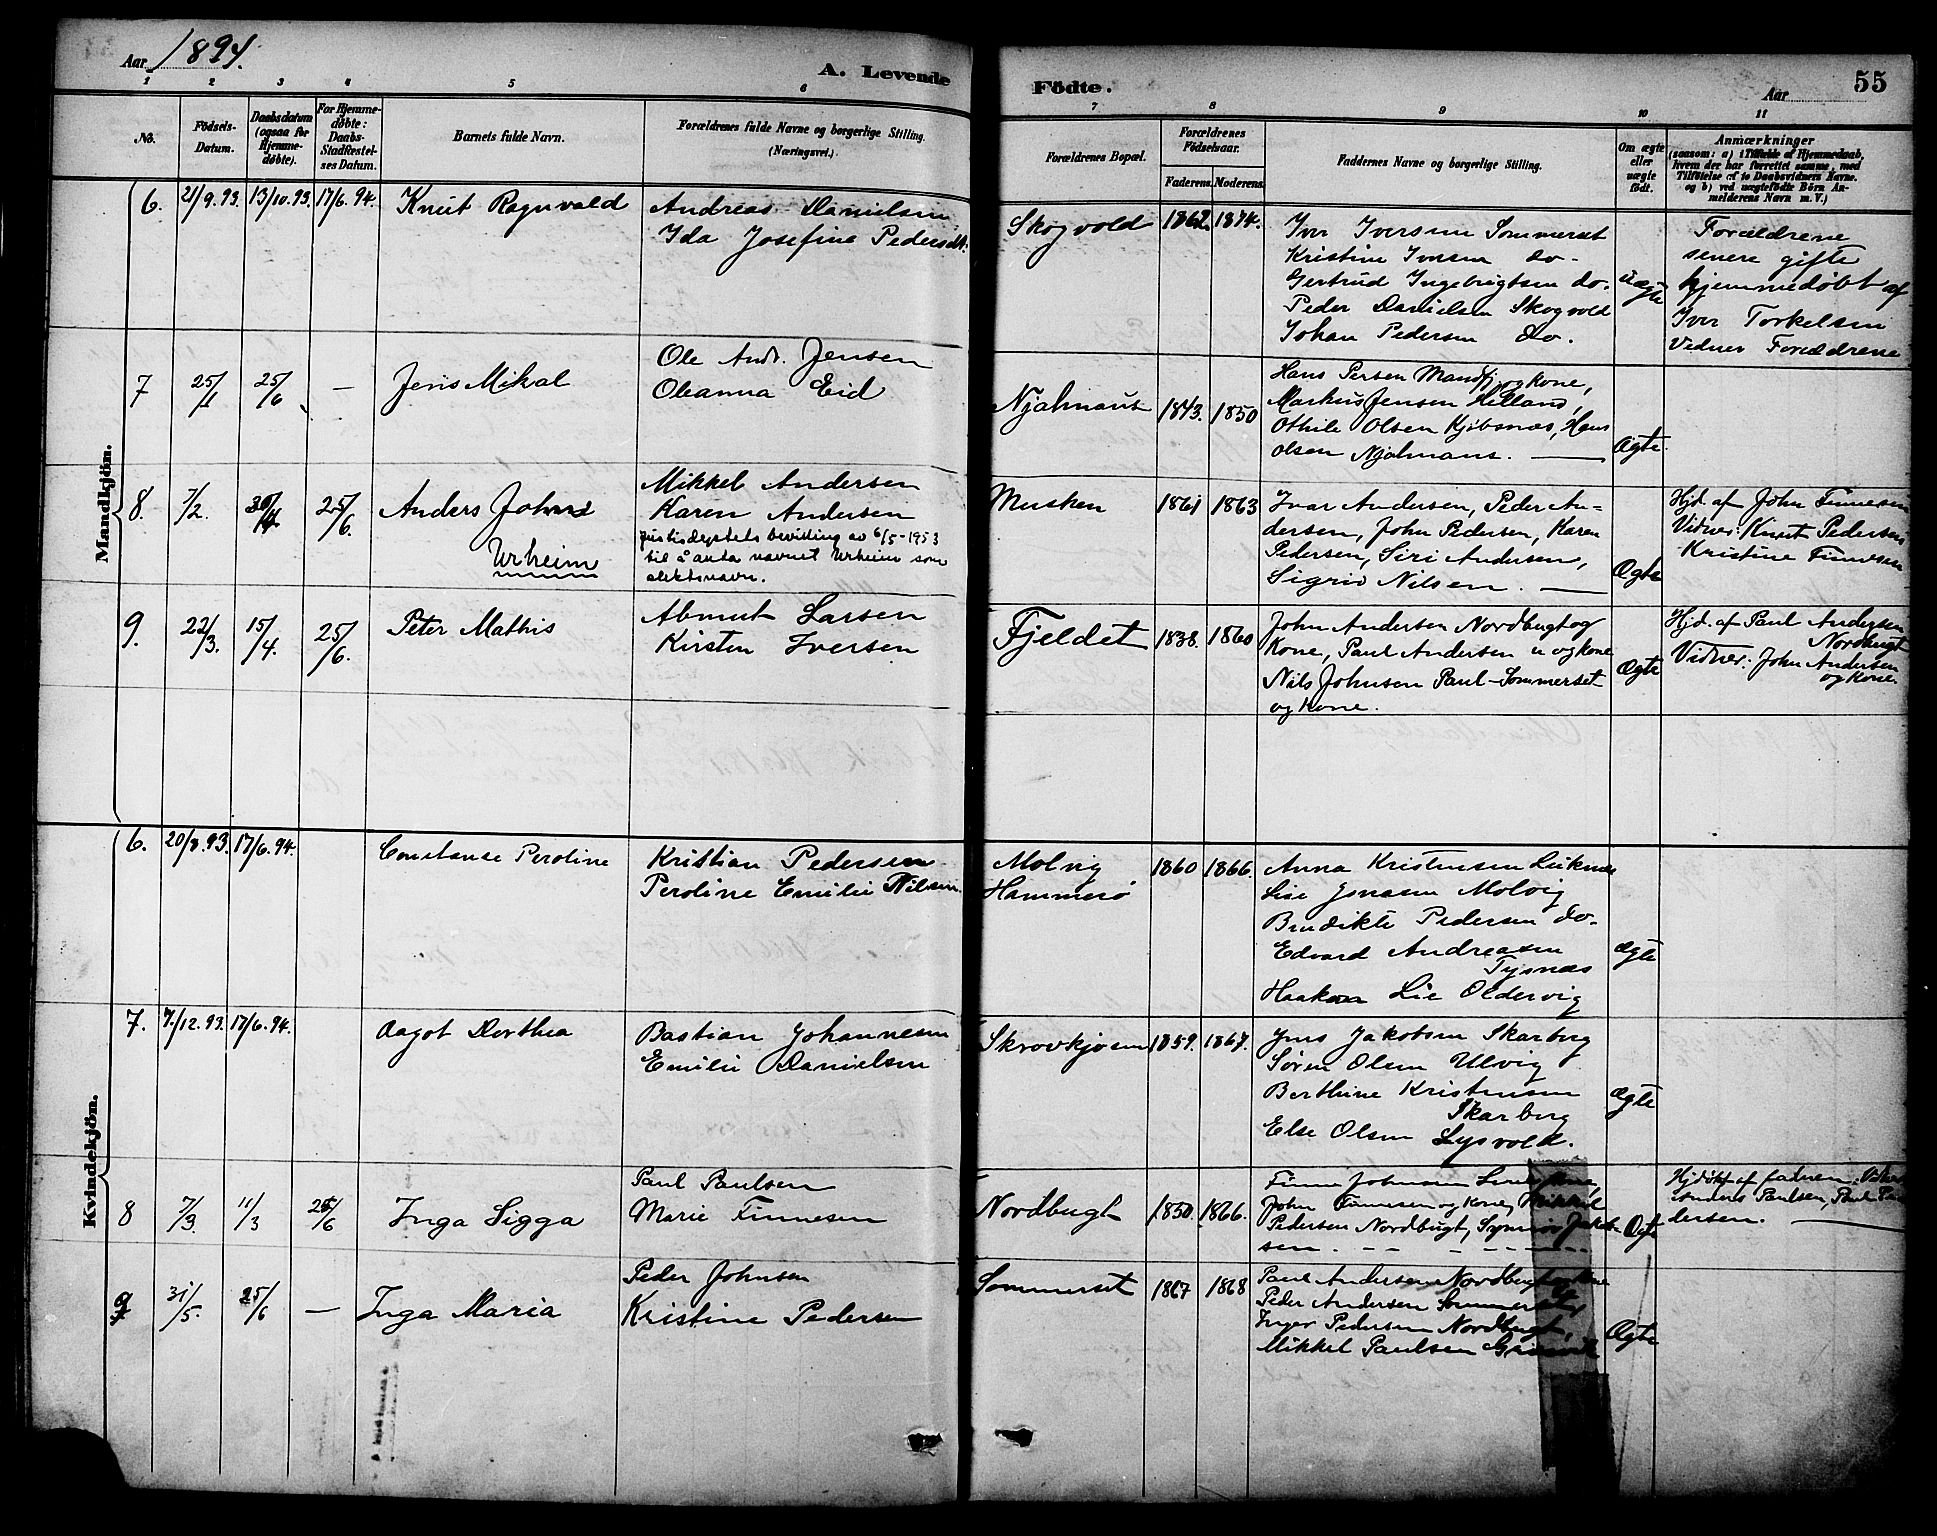 Aar 1894.
A. Levende
Födte.
Aar
55
1 2 3 4 5 6 7 8 9 10 11
No.
Födsels-Datum.
Daabsdatum (ogsaa for Hjemmedøbte).
For Hjemmedøbte: Daabs-Stadfæstelses Datum.
Barnets fulde Navn.
Forældrenes fulde Navne og borgerlige Stilling. (Næringsvei.)
Forældrenes Bopæl.
Forældrenes Födselsaar.
Faderens. Moderens.
Faddernes Navne og borgerlige Stilling.
Om ægte eller uægte födt.
Anmærkninger
(saasom: a) i Tilfælde af Hjemmedaab, hvem der har forrettet samme, med Tilföielse af to Daabsvidners Navne. og b) ved uægtefödte Börn Anmelderens Navn m. V.)
Mandkjön.
6. 21/9.93. 13/10.93. 17/6.94. Knut Ragnvald
Andreas Danielsen
Ida Josefine Pedersdt.
Skogvold 1862. 1874.
Iver Iversen Sommerset
Kristine Iversen do.
Gertrud Ingebrigtsen do.
Peder Danielsen Skogvold
Johan Pedersen do.
uægte
Forældrene
senere gifte
hjemmedøbt af
Iver Torkelsen
Vidner Forældrene
7 25/1 25/6 — Jens Mikal
Ole Andr. Jensen
Oleanna Eid
Njalmans 1843. 1850
Hans Persen Mandfj og kone,
Markus Jensen Helland,
Othile Olsen Kjøbsnæs, Hans
Olsen Njalmans. —
Ægte.
8. 7/2. 25/6 Anders Johns
Urheim
Mikkel Andersen
Karen Andersen
justisdeptets bevilling av 6/5-1953
til å anta navnet Urheim som
slektsnavn.
Musken 1861 1863
Ivar Andersen, Peder An-
dersen, John Pedersen, Karen
Pedersen, Siri Andersen,
Sigrid Nilsen. —
Ægte
Hjd. af John Finnesen
Vidner: Knut Pedersen
Kristine Finnesen
9. 22/3. 15/4. 25/6. Peter Mathis
Abmut Larsen
Kirsten Iversen
Fjeldet 1838. 1860
John Andersen Nordbugt og
Kone, Paul Andersen u og kone
Nils Johnsen Paul-Sommerset
og kone.
Ægte
Hjd. af Paul Andersen
Nordbugt
Vidner: John Andersen
og kone.
Kvindekjön.
6. 20/8.93. 17/6.94. Constanse Peroline
Kristian Pedersen
Peroline Emilie Nilsen
Molvig
Hammerø
1860 1866.
Anna Kristensen Leiknes
Lise Jonasen Molvig
Bendikte Pedersen do.
Edvard Andreasen
Tysnæs
Haakon Lie Oldervig
ægte
7. 7/12.93. 17/6.94. Aagot Dorthea
Bastian Johannesen
Emilie Danielsen
Skrovkjosen 1859. 1867.
Jens Jakobsen Skarberg
Søren Olsen Ulvig
Berthine Kristensen
Skarberg
Else Olsen Lysvold.
ægte
8 7/3 11/3 25/6 Inga Sigga
Paul Paulsen
Marie Finnesen
Nordbugt 1850. 1866.
John Finnesen og Kone, Mikkel
Pedersen Nordbugt,
sen.
Ægte
Hjdøbt af faderen. Vidner
Anders Paulsen, Paul Pe-
dersen. —
9 31/5. 25/6 — Inga Maria
Peder Johnsen
Kristine Pedersen
Sommerset 1867 1868
Paul Andersen Nordbugt og kone
Peder Andersen Sommerset,
Inger Pedersen Nordbugt,
Mikkel Paulsen
Ægte